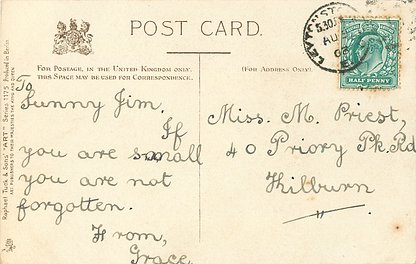 POST CARD.
FOR POSTAGE, IN THE UNITED KINGDOM ONLY,
THIS SPACE MAY BE USED FOR CORRESPONDENCE.
(FOR ADDRESS ONLY.)
To
Sunny Jim.
If
you are small
you are not
forgotten.
From,
Grace.
Miss. M. Priest,
40 Priory Pk. Rd
Kilburn
HALF PENNY
Raphael Tuck & Sons' "ART" Series 1175